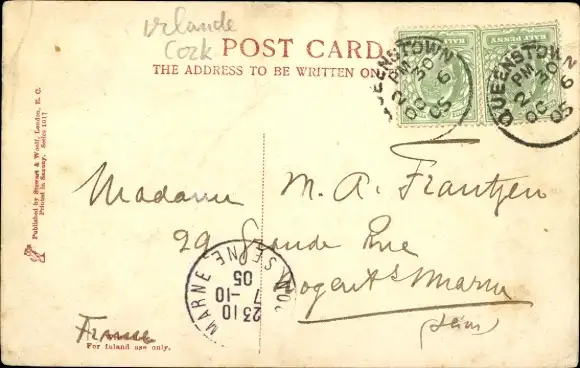 Irlande
Cork
POST CARD
THE ADDRESS TO BE WRITTEN ON
HALFPENNY
HALFPENNY
QUEENSTOWN
2 30 PM
OC 6
05
QUEENSTOWN
2 30 PM
OC 6
05
Published by Stewart & Woolf, London, E. C.
Printed in Saxony. Series 1017
Madame M. A. Frantzen
29 Grande Rue
Nogent s/ Marne
(Seine)
MARNE SEINE
23 10
7 -10
05
France
For Inland use only.